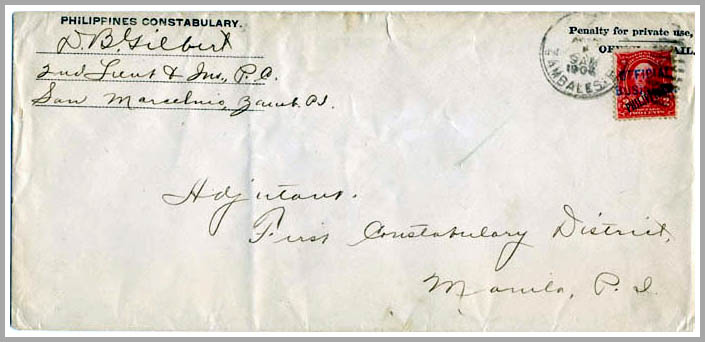 PHILIPPINES CONSTABULARY.
D. B. Gilbert
2nd Lieut & Ins, P. C.
San Marcelino, Zamb. P.I.
Penalty for private use,
OFFICIAL MAIL.
1906
AMBALES
OFFICIAL
BUSINESS
PHILIPPINES
TWO CENTS
Adjutant.
First Constabulary District,
Manila, P. I.